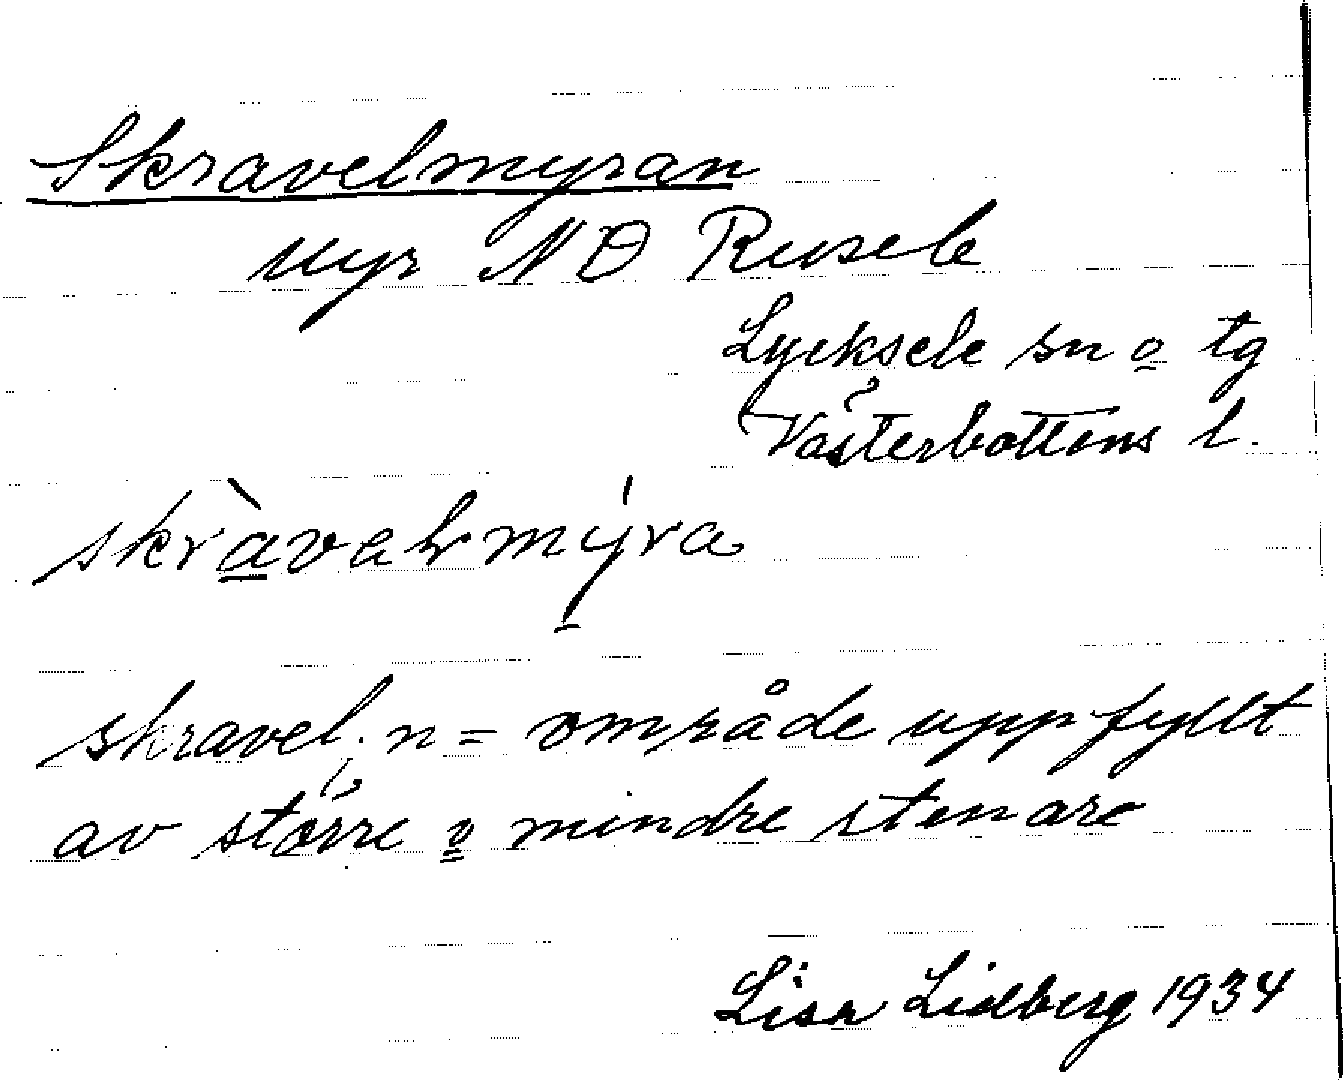 Skravelmyran
myr NO Rusele
Lycksele sn o tg
Västerbottens l.
skravel, n = område uppfyllt
av större o mindre stenar
Lisa Lidberg 1934